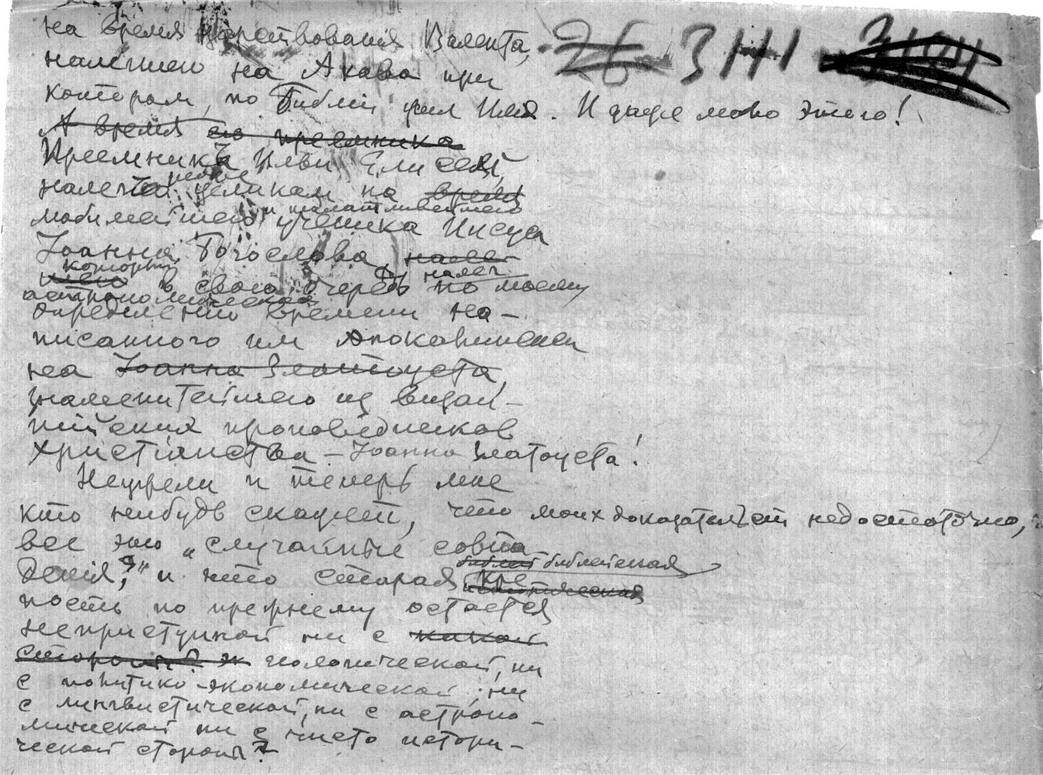 на время царствования Валента,
26 3141
налегшего на Ахава при
котором, по Библіи жил Илия. И даже мало этого!
А время его преемника
Преемникъ Ильи Елисей,
налегъ целиком на время
любимейшего учешика Иисуса
Іоанна Богослова,
который в свою очередь налег по моему
астрономическому
определению времени на-
писанного им Апокалипсиса
на Іоанна Златоуста,
знаменитейшего из визан-
тійских проповедников
христіянства – Іоанна Златоуста!
Неужели и теперь мне
кто нибудь скажет, что моих доказательств недостаточно,
все это „случайные совпа
дения," и что старая библейская кре
пость по прежнему остается
неприступной ни с какой
стороны геологической, ни
с политико-экономической, ни
с лингвистической, ни с астроно-
мической ни с чисто истори-
ческой стороны?